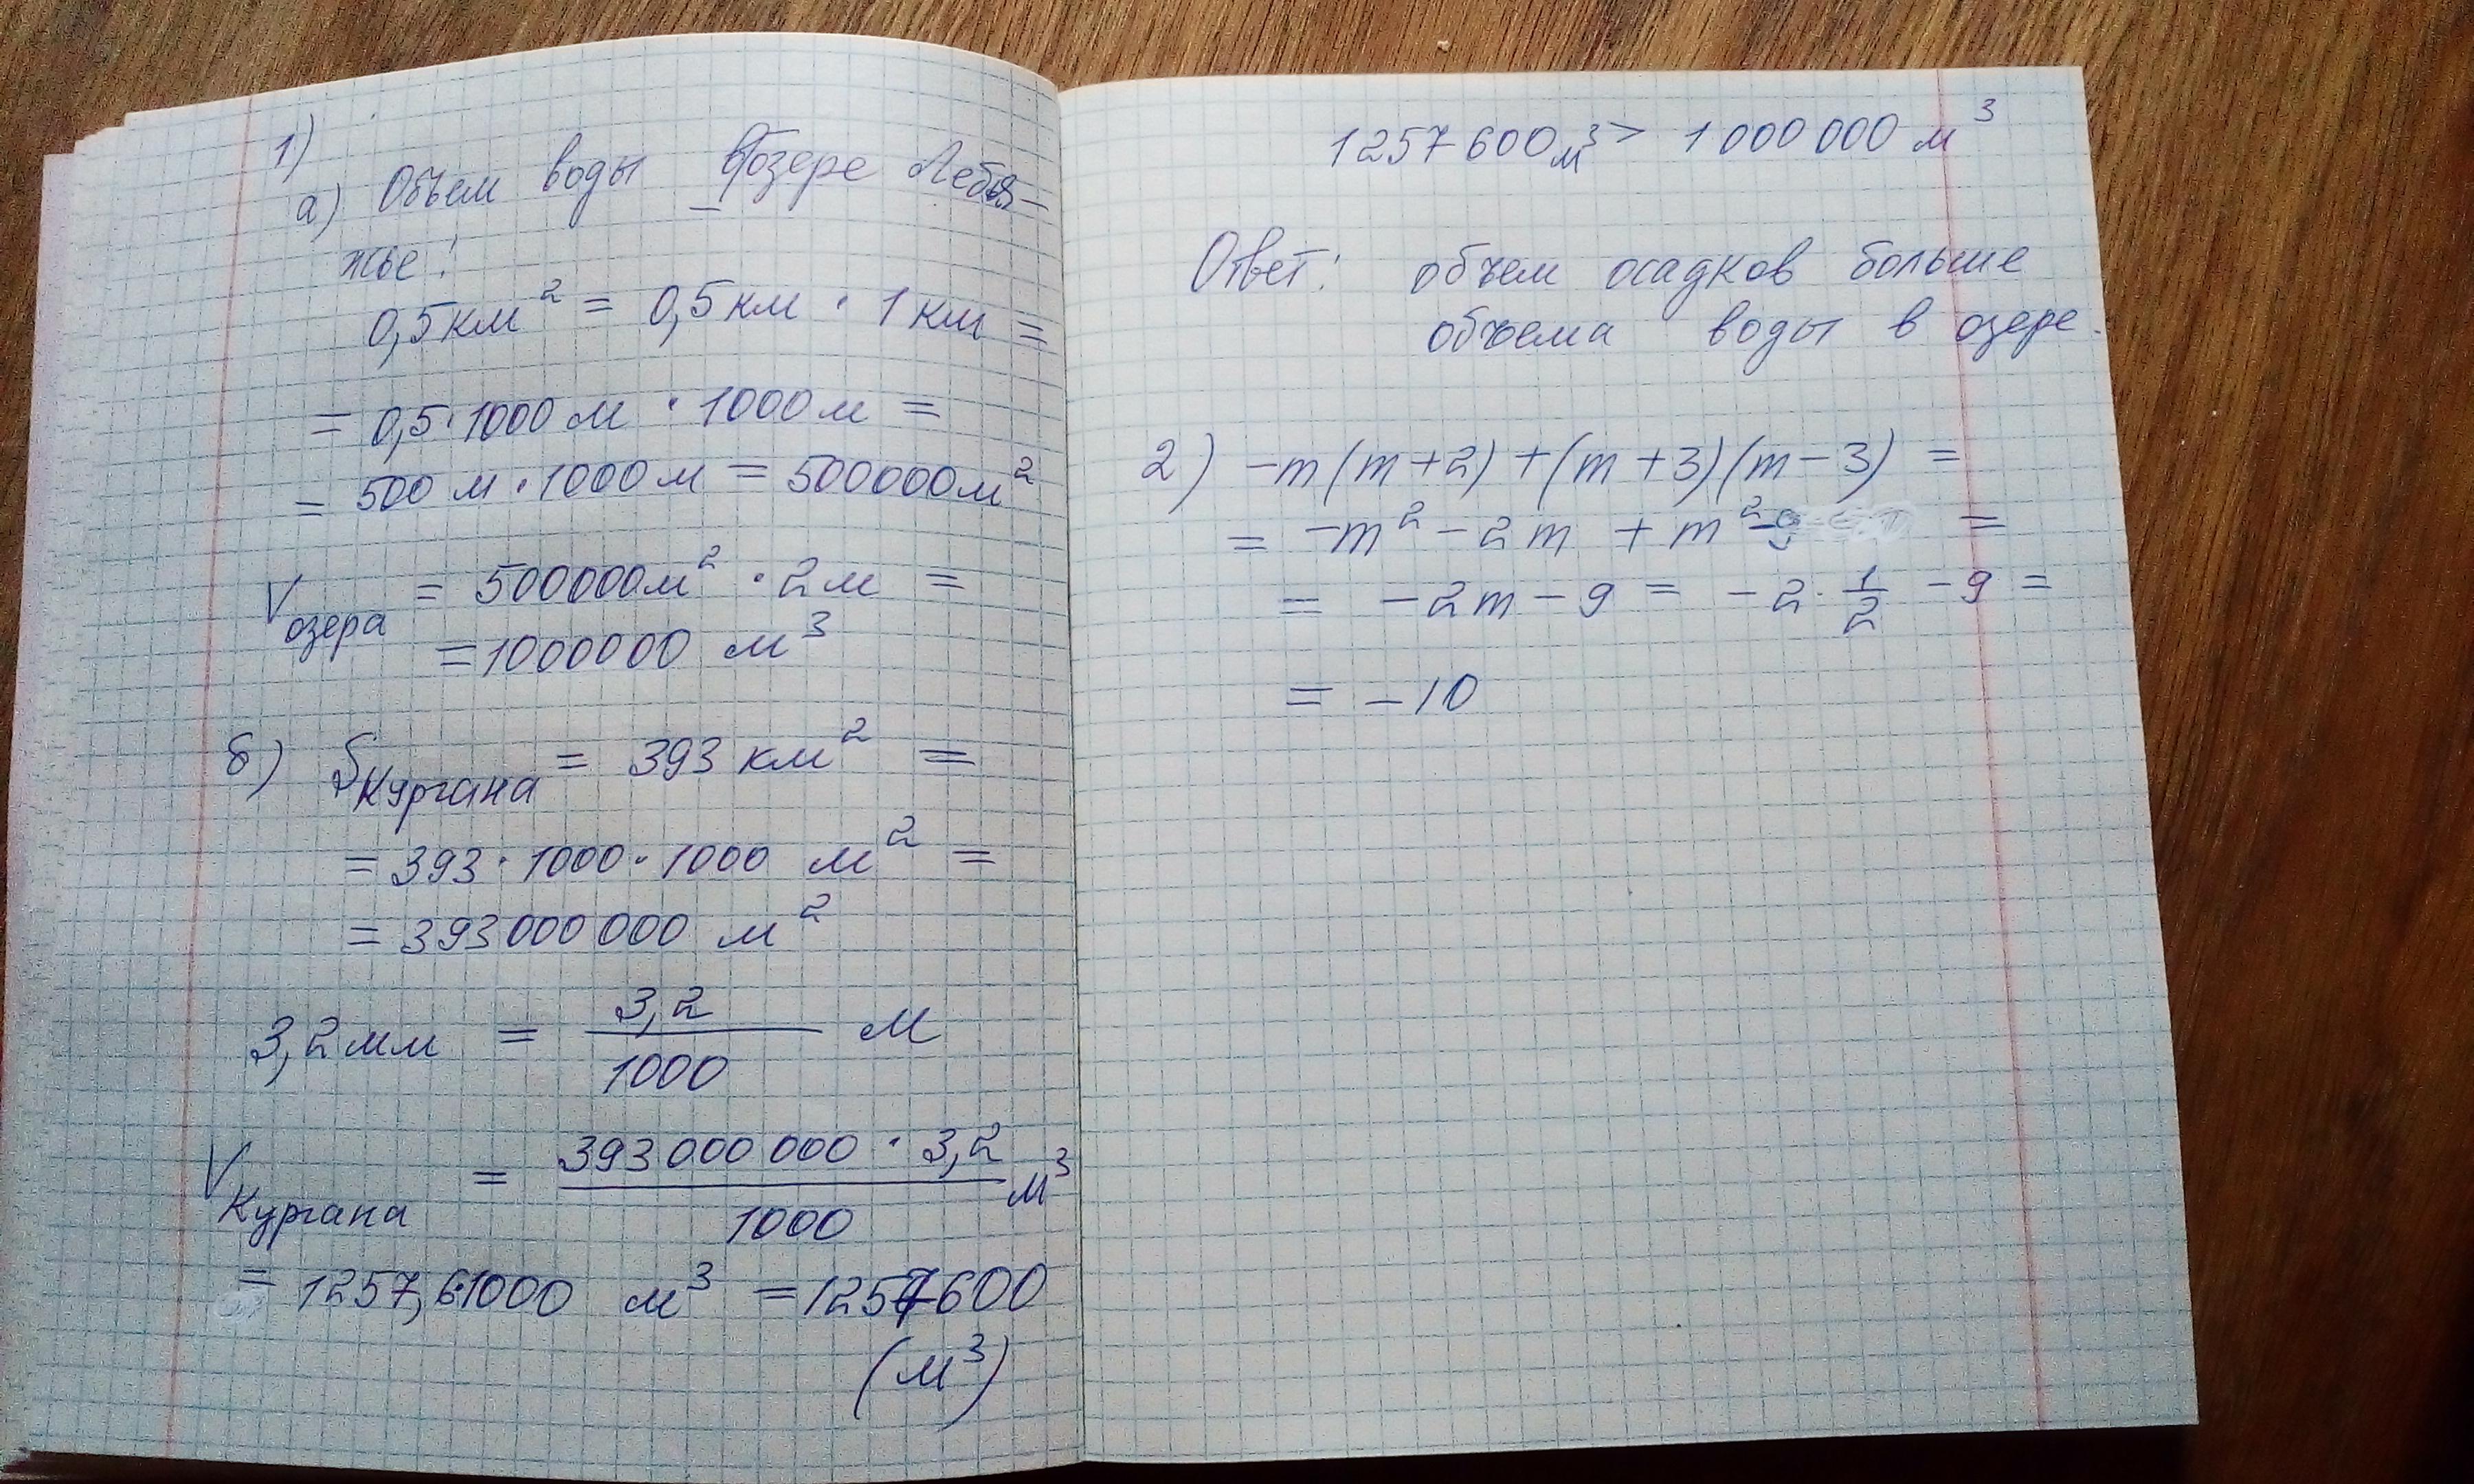 1)
а) Объем воды в озере Лебя-
жье:
0,5 км² = 0,5 км · 1 км =
= 0,5 · 1000 м · 1000 м =
= 500 м · 1000 м = 500000 м²
Vозера = 500000 м² · 2 м =
= 1000000 м³
б) SКургана = 393 км² =
= 393 · 1000 · 1000 м² =
= 393 000 000 м²
3,2 мм = 3,2/1000 м
VКургана = 393 000 000 · 3,2/1000 м³
= 1257,6·1000 м³ = 1257600
(м³)
1257 600 м³ > 1 000 000 м³
Ответ: объем осадков больше
объема воды в озере.
2) -m(m+2)+(m+3)(m-3) =
= -m² - 2m + m² - 9 =
= -2m - 9 = -2 · 1/2 - 9 =
= -10